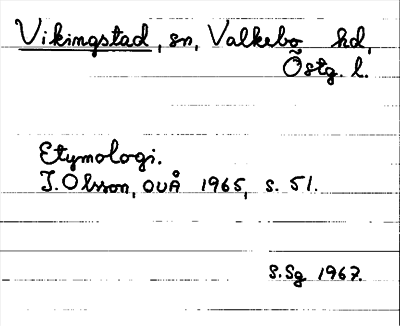 Vikingstad, sn, Valkebo hd,
Östg. l.
Etymologi.
I. Olsson, OUÅ 1965, s. 51.
S.Sg 1967.